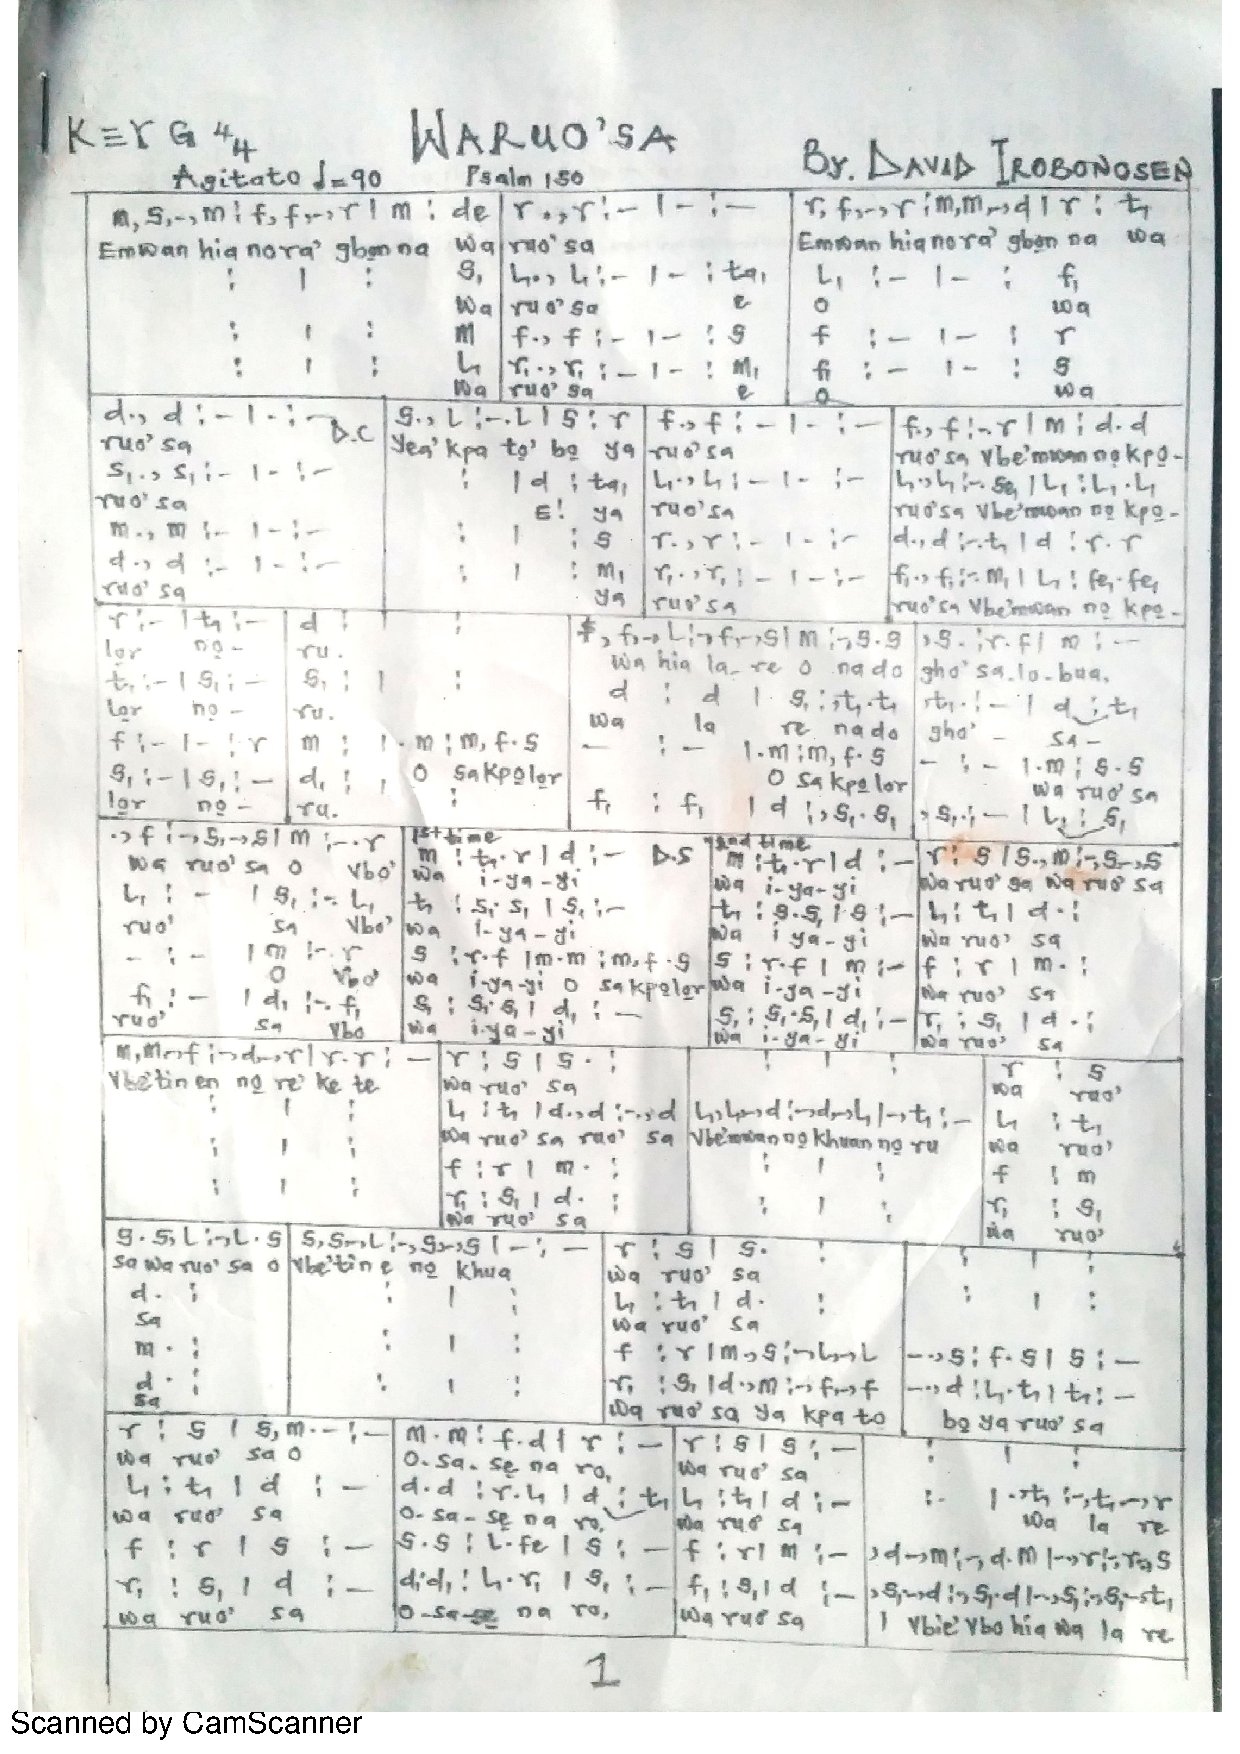 KEY G 4/4
WARUO'SA
By. DAVID IROBONOSEN
Agitato d=90
Psalm 150
m, s,-, m : f, f,-, r | m : de | r ., r : - | - : - | r, f,-, r : m, m,-, d | r : t₁
Emwan hia nora' gbon na wa | ruo'sa | Emwan hia nora' gbon na wa
: | : s₁ | L₁ ., L₁ : - | - : ta₁ | L₁ : - | - : f₁
wa | ruo'sa e | o wa
: | : m | f ., f : - | - : s | f : - | - : r
: | : L₁ | r₁ ., r₁ : - | - : m₁ | f₁ : - | - : s
wa | ruo'sa e | o wa
d ., d : - | - : - D.C | s ., L : - . L | s : r | f ., f : - | - : - | f ., f : - . r | m : d . d
ruo'sa | yea' kpa to' bọ ya | ruo'sa | ruo'sa vbe'mwan nọ kpọ-
s₁ ., s₁ : - | - : - | : | d : ta₁ | L₁ ., L₁ : - | - : - | L₁ ., L₁ : - . se₁ | L₁ : L₁ . L₁
ruo'sa | E! ya | ruo'sa | ruo'sa vbe'mwan nọ kpọ-
m ., m : - | - : - | : | : s | r ., r : - | - : - | d ., d : - . t₁ | d : r . r
d ., d : - | - : - | : | : m₁ | r₁ ., r₁ : - | - : - | f₁ ., f₁ : - . m₁ | L₁ : fe₁ . fe₁
ruo'sa | ya | ruo'sa | ruo'sa vbe'mwan nọ kpọ-
r : - | t₁ : - | d : : | f, f,-, L : -, f,-, s | m : -, s . s | , s . : r . f | m : -
lọr nọ- | ru. | wa hia la-re o na do | gho' sa-lo-bua,
t₁ : - | s₁ : - | s₁ : | : | d : d | s₁ : , t₁ . t₁ | , t₁ . : - | d : t₁
lọr nọ- | ru. | wa la re na do | gho' - sa-
f : - | - : r | m : | . m : m, f . s | - : - | . m : m, f . s | - : - | . m : s . s
o sakpọlor | o sakpọlor | wa ruo'sa
s₁ : - | s₁ : - | d₁ : | : | f₁ : f₁ | d : , s₁ . s₁ | , s₁ . : - | L₁ : s₁
lọr nọ- | ru.
., f : -, s,-, s | m : - . r | 1st time m : t₁ . r | d : - D.S | 2nd time m : t₁ . r | d : - | r : s | s ., m : -, s,-, s
wa ruo' sa o vbo' | wa i-ya-yi | wa i-ya-yi | wa ruo' sa wa ruo' sa
L₁ : - | s₁ : - . L₁ | t₁ : s₁ . s₁ | s₁ : - | t₁ : s . s₁ | s : - | L₁ : t₁ | d . :
ruo' sa vbo' | wa i-ya-yi | wa i ya-yi | wa ruo' sa
- : - | m : - . r | s : r . f | m . m : m, f . s | s : r . f | m : - | f : r | m . :
o vbo' | wa i-ya-yi o sakpọlor | wa i-ya-yi | wa ruo' sa
f₁ : - | d₁ : - . f₁ | s₁ : s₁ . s₁ | d₁ : - | s₁ : s₁ . s₁ | d₁ : - | r₁ : s₁ | d . :
ruo' sa vbo | wa i-ya-yi | wa i-ya-yi | wa ruo' sa
m, m,-, f : -, d,-, r | r . r : - | r : s | s . : | : | : | r : s
vbe'tin en nọ re' ke te | wa ruo' sa | wa ruo'
: | : | L₁ : t₁ | d ., d : - ., d | L₁, L₁,-, d : -, d,-, L₁ | -, t₁ : - | L₁ : t₁
wa ruo' sa ruo' sa | vbe'mwan nọ khuan nọ ru | wa ruo'
: | : | f : r | m . : | : | : | f : m
: | : | r₁ : s₁ | d . : | : | : | r₁ : s₁
wa ruo' sa | wa ruo'
s . s, L : -, L . s | s, s,-, L : -, s,-, s | - : - | r : s | s . : | : | :
sa wa ruo' sa o | vbe'tin e nọ khua | wa ruo' sa
d . : | : | : | L₁ : t₁ | d . : | : | :
sa | wa ruo' sa
m . : | : | : | f : r | m, s : -, L,-, L | - ., s : f . s | s : -
d . : | : | : | r₁ : s₁ | d ., m : -, f,-, f | - ., d : L₁ . t₁ | t₁ : -
sa | wa ruo' sa ya kpa to | bọ ya ruo' sa
r : s | s, m . - : - | m . m : f . d | r : - | r : s | s : - | : | :
wa ruo' sa o | o-sa-sẹ na ro, | wa ruo' sa
L₁ : t₁ | d : - | d . d : r . L₁ | d : t₁ | L₁ : t₁ | d : - | : - | ., t₁ : -, t₁,-, r
wa ruo' sa | o-sa-sẹ na ro, | wa ruo' sa | wa la re
f : r | s : - | s . s : L . fe | s : - | f : r | m : - | , d,-, m : -, d . m | -, r : -, r, s
r₁ : s₁ | d : - | d₁ . d₁ : L₁ . r₁ | s₁ : - | f₁ : s₁ | d : - | , s₁,-, d : -, s₁ . d | -, s₁ : -, s₁,-, t₁
wa ruo' sa | o-sa-sẹ na ro, | wa ruo' sa | vbie' vbo hia wa la re
1
Scanned by CamScanner